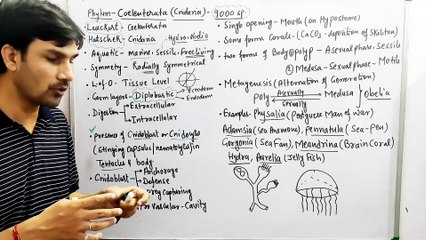 Phylum - Coelenterata (Cnidaria) - 9000 sp
Leuckart - Coelenterata
Hatschek - Cnidaria Hydro, Nidio
Aquatic - marine - Sessile Free living
Symmetry - Radially Symmetrical
L-of-O- Tissue Level
Germ layers - Diplobastic Ectoderm
Endoderm
Digestion Extracellular
Intracellular
Presence of Cnidoblast or Cnidocyte
(Stinging Capsules) nematocyst in
Tentacles & body.
Cnidoblast - Anchorage
Defense
Prey Capturing
Vascular - Cavity
Single opening - Mouth (on Hypostome)
Some forms Corals - (CaCO3 - deposition of Skeleton)
two forms of Body Polyp - Asexual phase - Sessile
Medusa - Sexual phase - Motile
Metagenesis (Alternation of Generation)
Polyp Asexually Medusa Obelia
Sexually
Examples - Physalia (Portuguese Man of war)
Adamsia (Sea Anemone), Pennatula (Sea-Pen)
Gorgonia (Sea Fan), Meandrina (Brain Coral)
Hydra, Aurelia (Jelly Fish)